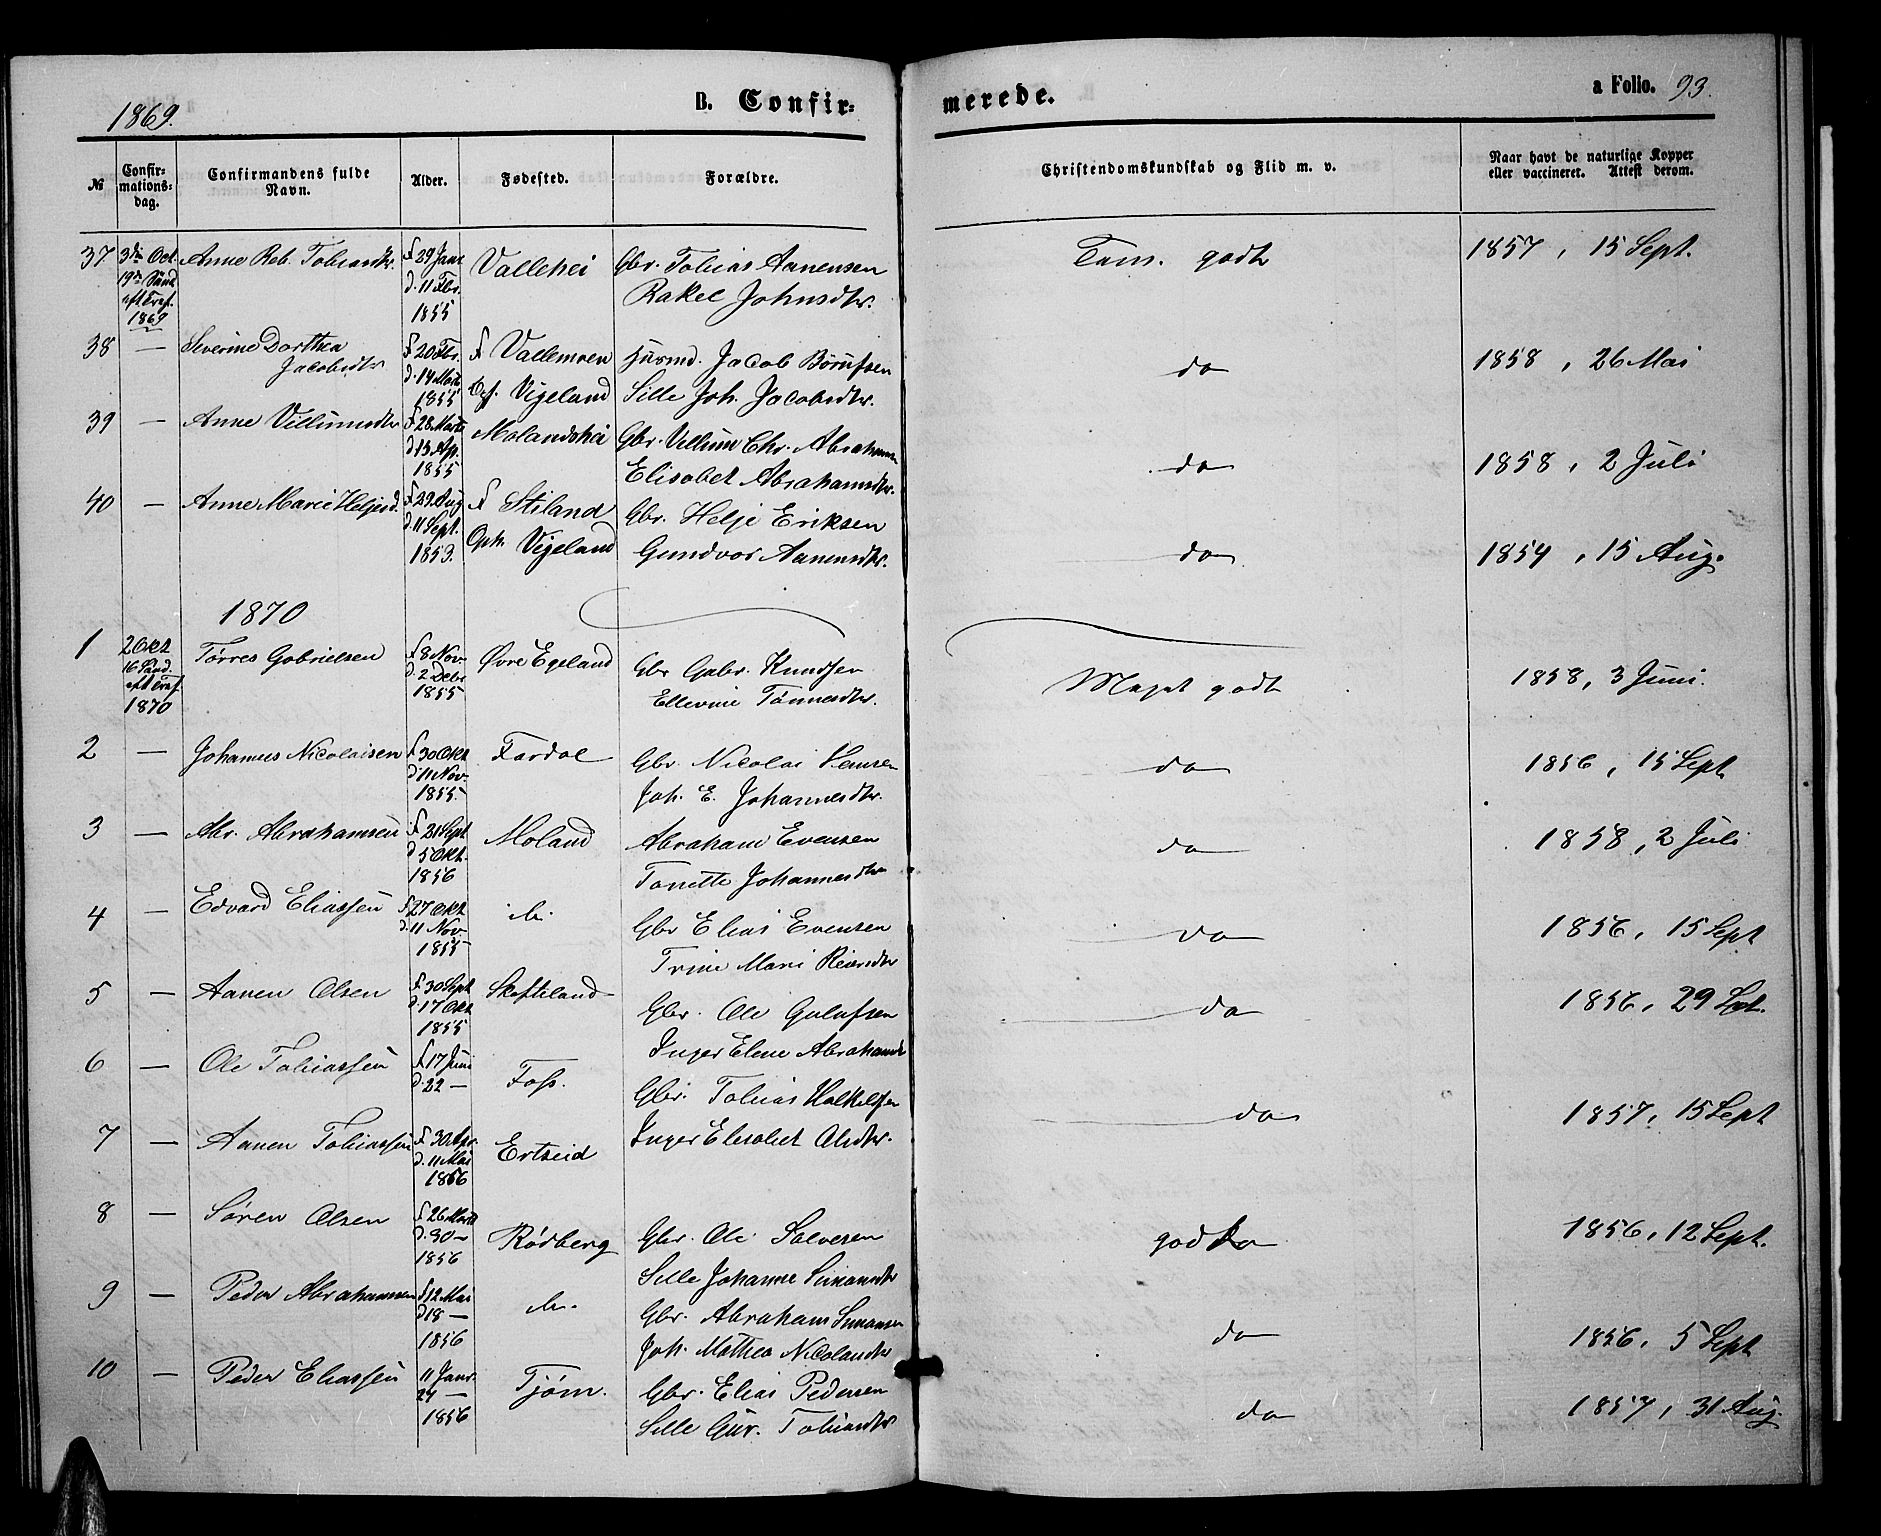 1869.
B. Confir-
merede.
a Folio. 93.
№
Confir-
mations-
dag.
Confirmandens fulde
Navn.
Alder.
Fødested.
Forældre.
Christendomskundskab og Flid m. v.
Naar havt de naturlige Kopper
eller vaccineret. Attest derom.
37 3die Oct. Anne Reb. Tobiasdtr. f 29 Janr Vallehei Gbr. Tobias Aanensen Tem. godt 1857, 15 Sept.
19de Sønd d. 11 Fbr. Rakel Johnsdtr.
eft Tref. 1855
1869
38 — Severine Dorthea f 20 Fbr. f Vallemoen Husmd. Jacob Børufsen do 1858, 26 Mai
Jacobsdtr d. 14 Marts Opf. Vigeland Sille Joh. Jacobsdtr.
1855
39 — Anne Villumsdtr f 28 Marts Molandshei Gbr. Villum Chr. Abrahamsen do 1858, 2 Juli
d 15 Ap. Elisabet Abrahamsdtr.
1855
40 — Anne Marie Heljesd. f 29 Aug f Stiland Gbr. Helje Eriksen do 1854, 15 Aug.
d. 11 Sept. Oph. Vigeland Gundvor Aanensdtr.
1853.
1870
1 2 Okt Tørres Gabrielsen f 8 Nov Øvre Egeland Gbr Gabr. Knudsen Meget godt 1858, 3 Juni.
16 Sønd. d. 2 Debr Ellevine Tønnesdtr.
eft Tref. 1855
1870
2 — Johannes Nicolaisen f 30 Okt Fardal Gbr. Nicolai Hansen do 1856, 15 Sept
d 11 Nov. Joh. E. Johannesdtr.
1855.
3 — Abr. Abrahamsen f 21 Sept Moland Abraham Evensen do 1858, 2 Juli
d 5 Okt. Tonette Johannesdtr
1856
4 — Edvard Eliassen f 27 Okt ib. Gbr Elias Evensen do 1856, 15 Sept
d. 11 Nov Trine Marie Reiersdtr
1855
5 — Aanen Olsen f 30 Sept Skofteland Gbr. Ole Gulufsen do 1856, 29 Sept.
d. 17 Okt Inger Elene Abrahamsdtr
1855
6 — Ole Tobiassen f 17 Juni Foss. Gbr. Tobias Halkelsen do 1857, 15 Sept
d. 22 — Inger Elisabet Olsdtr.
7 — Aanen Tobiassen f 30 Apr. Ertseid
d. 11 Mai
1856
8 — Søren Olsen f 26 Marts Rødberg Gbr. Ole Salvesen godt 1856, 12 Sept.
d. 30 — Sille Johanne Simonsdtr
1856
9 — Peder Abrahamsen f 12 Mai ib. Gbr. Abraham Simonsen do 1856, 5 Sept
d 18 — Joh. Mathea Nicolaidtr
1856
10 — Peder Eliassen 11 Janr. Tjøm. Gbr. Elias Pedersen do 1857, 31 Aug.
24 — Sille Gur. Tobiasdtr
1856